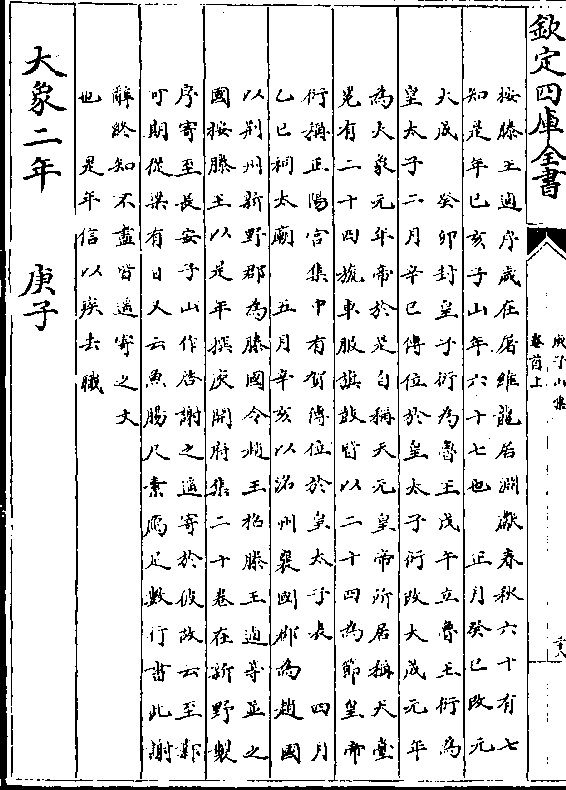 欽定四庫全書
庾子山集
卷首上
按滕王逌序歲在屠維龍居淵獻春秋六十有七
知是年已亥子山年六十七也 正月癸巳改元
大成 癸卯封皇子衍為魯王戊午立魯王衍為
皇太子二月辛巳傳位於皇太子衍改大成元年
為大象元年帝於是自稱天元皇帝所居稱天臺
冕有二十四旒車服旗鼓皆以二十四為節皇帝
衍稱正陽宫集中有賀傳位於皇太子表 四月
乙巳祠太廟 五月辛亥以洺州襄國郡為趙國
以荆州新野郡為滕國令趙王招滕王逌等並之
國按滕王以是年撰庾開府集二十卷在新野製
序寄至長安子山作啓謝之遥寄於彼故云至鄴
可期從梁有日又云魚腸尺素鴈足數行書此謝
辭終知不盡皆遥寄之文
也 是年信以疾去職
大象二年 庚子